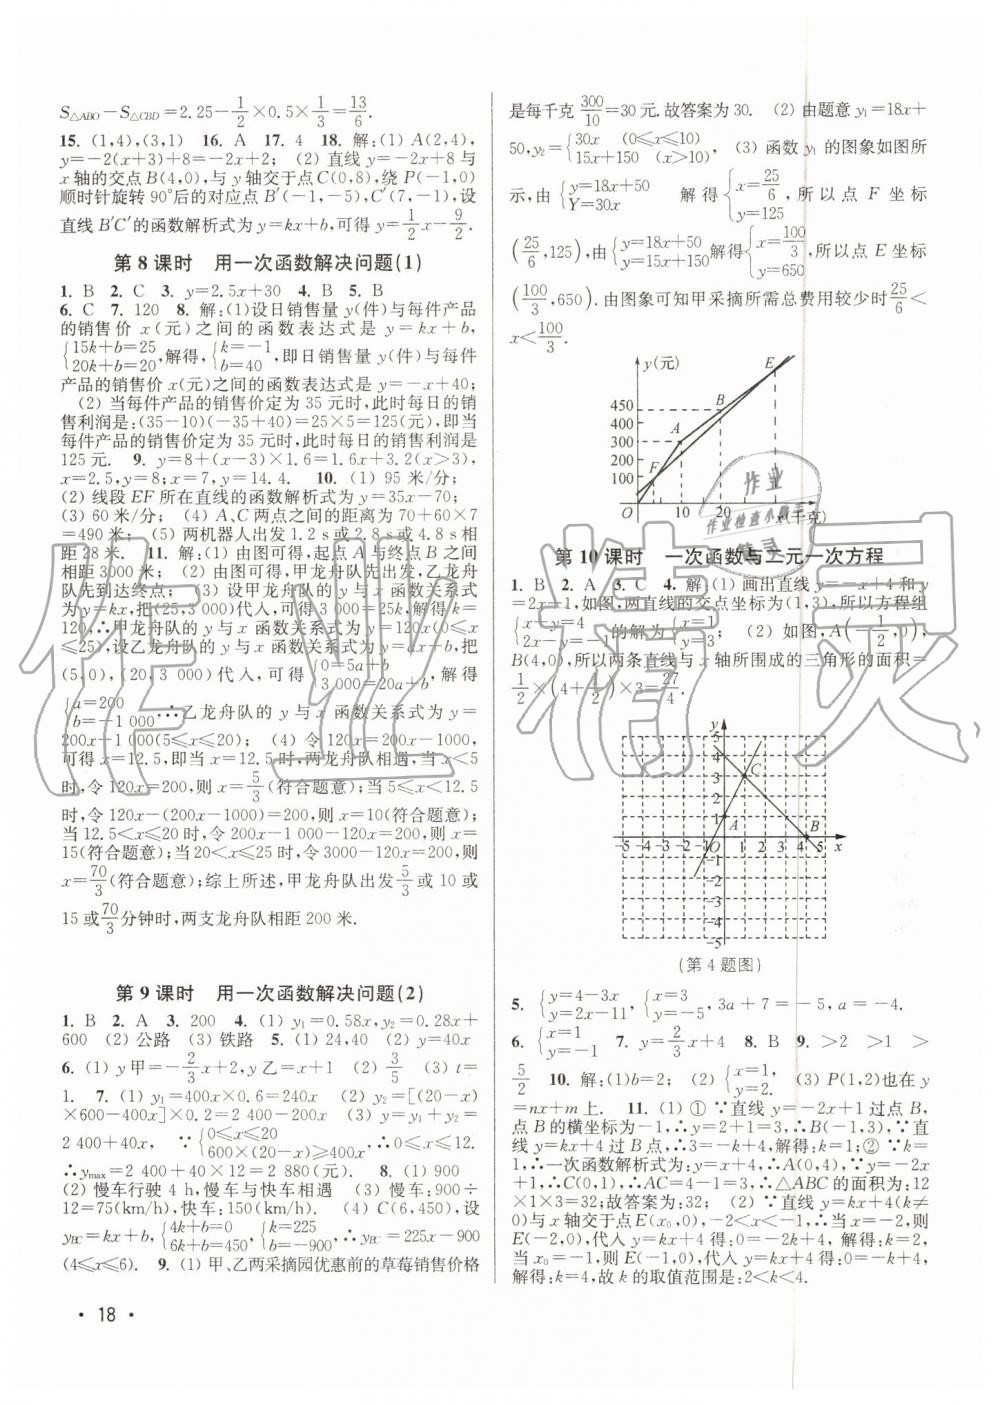 S△ABO－S△CBD＝2.25－1/2×0.5×1/3＝13/6.
15. (1,4),(3,1)　16. A　17. 4　18. 解:(1) A(2,4),
y＝－2(x＋3)＋8＝－2x＋2; (2) 直线 y＝－2x＋8 与
x 轴的交点 B(4,0), 与 y 轴交于点 C(0,8), 绕 P(－1,0)
顺时针旋转 90°后的对应点 B′(－1,－5), C′(7,－1), 设
直线 B′C′的函数解析式为 y＝kx＋b, 可得 y＝1/2x－9/2.
第 8 课时　用一次函数解决问题(1)
1. B　2. C　3. y＝2.5x＋30　4. B　5. B
6. C　7. 120　8. 解:(1)设日销售量 y(件)与每件产品
的销售价 x(元)之间的函数表达式是 y＝kx＋b,
{15k＋b＝25 20k＋b＝20, 解得, {k＝－1 b＝40, 即日销售量 y(件)与每件
产品的销售价 x(元)之间的函数表达式是 y＝－x＋40;
(2) 当每件产品的销售价定为 35 元时,此时每日的销
售利润是:(35－10)(－35＋40)＝25×5＝125(元),即当
每件产品的销售价定为 35 元时,此时每日的销售利润是
125 元.　9. y＝8＋(x－3)×1.6＝1.6x＋3.2(x＞3),
x＝2.5,y＝8;x＝7,y＝14.4.　10. (1) 95 米/分;
(2) 线段 EF 所在直线的函数解析式为 y＝35x－70;
(3) 60 米/分;　(4) A、C 两点之间的距离为 70＋60×7
＝490 米;　(5) 两机器人出发 1.2 s 或 2.8 s 或 4.8 s 相
距 28 米.　11. 解:(1) 由图可得,起点 A 与终点 B 之间
相距 3 000 米; (2) 由图可得,甲龙舟队先出发,乙龙舟
队先到达终点; (3) 设甲龙舟队的 y 与 x 函数关系式
为 y＝kx,把(25,3 000)代入,可得 3 000＝25k,解得 k＝
120,∴甲龙舟队的 y 与 x 函数关系式为 y＝120x(0≤x
≤25),设乙龙舟队的 y 与 x 函数关系式为 y＝ax＋b,把
(5,0),(20,3 000)代入,可得{0＝5a＋b 3 000＝20a＋b, 解得
{a＝200 b＝－1 000,∴乙龙舟队的 y 与 x 函数关系式为 y＝
200x－1 000(5≤x≤20); (4) 令 120x＝200x－1 000,
可得 x＝12.5,即当 x＝12.5 时,两龙舟队相遇,当 x＜5
时,令 120x＝200,则 x＝5/3(符合题意);当 5≤x＜12.5
时,令 120x－(200x－1000)＝200,则 x＝10(符合题意);
当 12.5＜x≤20 时,令 200x－1 000－120x＝200,则 x＝
15(符合题意);当20＜x≤25 时,令 3000－120x＝200,则
x＝70/3(符合题意);综上所述,甲龙舟队出发5/3或 10 或
15 或70/3分钟时,两支龙舟队相距 200 米.
第 9 课时　用一次函数解决问题(2)
1. B　2. A　3. 200　4. (1) y₁＝0.58x,y₂＝0.28x＋
600　(2) 公路　(3) 铁路　5. (1) 24,40　(2) y＝40x
6. (1) y 甲＝－2/3x＋2,y 乙＝x＋1　(2) 3/5　(3) t＝
1.　7. (1) y₁＝400x×0.6＝240x　(2) y₂＝[(20－x)
×600－400x]×0.2＝2 400－200x　(3) y＝y₁＋y₂＝
2 400＋40x,　∵{0≤x≤20 600×(20－x)≥400x,　∴0≤x≤12.
∴ymax＝2 400＋40×12＝2 880(元).　8. (1) 900
(2) 慢车行驶 4 h,慢车与快车相遇　(3) 慢车:900÷
12＝75(km/h),快车:150(km/h).　(4) C(6,450),设
yBC＝kx＋b,{4k＋b＝0 6k＋b＝450,{k＝225 b＝－900,∴yBC＝225x－900
(4≤x≤6).　9. (1) 甲、乙两采摘园优惠前的草莓销售价格
• 18 •
是每千克300/10＝30元.故答案为 30.　(2) 由题意 y₁＝18x＋
50,y₂＝{30x　(0≤x≤10) 15x＋150　(x＞10),　(3) 函数 y₁ 的图象如图所
示,由{y＝18x＋50 Y＝30x　解得{x＝25/6 y＝125, 所以点 F 坐标
(25/6,125),由{y＝18x＋50 y＝15x＋150解得{x＝100/3 y＝650, 所以点 E 坐标
(100/3,650).由图象可知甲采摘所需总费用较少时25/6＜
x＜100/3.
y(元)
E
450
B
400
A
300
200
F
100
O
10
20
x(千克)
第 10 课时　一次函数与二元一次方程
1. B　2. A　3. C　4. 解:(1) 画出直线 y＝－x＋4 和 y
＝2x＋1,如图,两直线的交点坐标为(1,3),所以方程组
{x＋y＝4 2x－y＝－1的解为{x＝1 y＝3;　(2) 如图,A(－1/2,0),
B(4,0),所以两条直线与 x 轴所围成的三角形的面积＝
1/2×(4＋1/2)×3＝27/4.
y
5
4
3
2
1
C
A
B
－5 －4 －3 －2 －1 O 1 2 3 4 5 x
－1
－2
－3
－4
－5
(第 4 题图)
5. {y＝4－3x y＝2x－11,{x＝3 y＝－5,3a＋7＝－5,a＝－4.
6. {x＝1 y＝－1　7. y＝2/3x＋4　8. B　9. ＞2　＞1　＞
5/2　10. 解:(1)b＝2;　(2) {x＝1, y＝2.　(3) P(1,2)也在 y
＝nx＋m 上.　11. (1) ① ∵直线 y＝－2x＋1 过点 B,
点 B 的横坐标为－1,∴y＝2＋1＝3,∴B(－1,3),∵直
线 y＝kx＋4 过 B 点,∴3＝－k＋4,解得:k＝1;② ∵k＝
1,∴一次函数解析式为:y＝x＋4,∴A(0,4),∵y＝－2x
＋1,∴C(0,1),∴AC＝4－1＝3,∴△ABC 的面积为:1/2
×1×3＝3/2;故答案为:3/2;　(2) ∵直线 y＝kx＋4(k≠
0)与 x 轴交于点 E(x₀,0),－2＜x₀＜－1,∴当 x₀＝－2,则
E(－2,0),代入 y＝kx＋4 得:0＝－2k＋4,解得:k＝2,
当 x₀＝－1,则 E(－1,0),代入 y＝kx＋4 得:0＝－k＋4,
解得:k＝4,故 k 的取值范围是:2＜k＜4.
作业精灵
作业
作业检查小助手
精灵